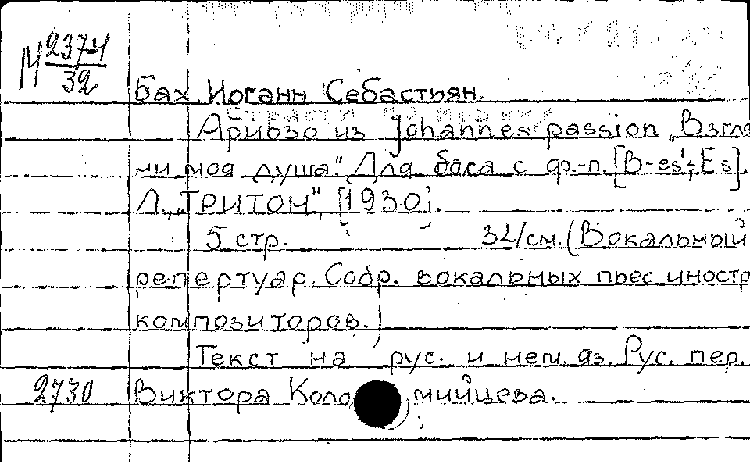 М 2374/32
Бах Иоганн Себастьян.
Ариозо из Johannes passion „Взгля
ни моя душа". Для баса с ф.-п. [B-es¹; Es].
Л., „ТРИТОН", [1930].
5 стр. 34/см. (Вокальный
репертуар. Собр. вокальных пьес иностр
композиторов.)
Текст на рус. и нем. яз. Рус. пер.
2730 Виктора Коломийцева.